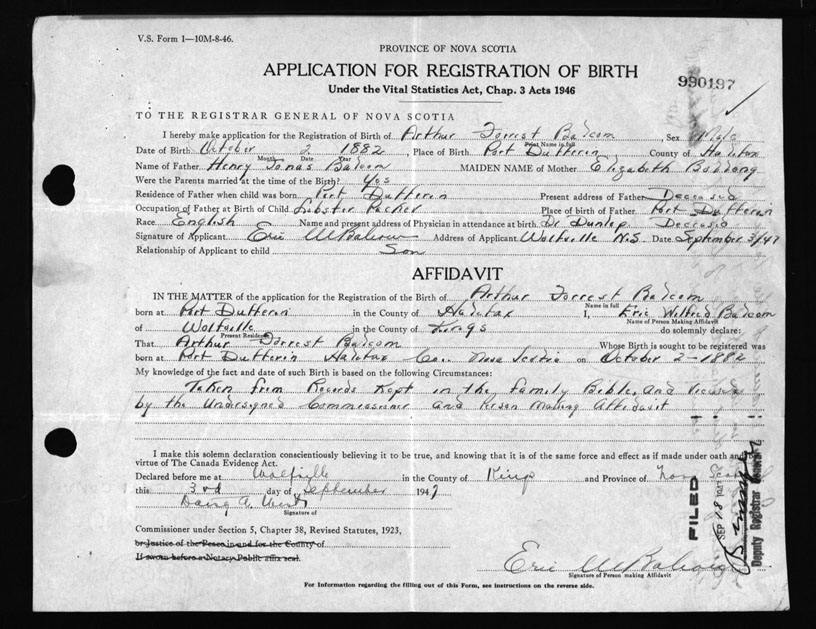 V.S. Form 1—10M-8-46.
PROVINCE OF NOVA SCOTIA
APPLICATION FOR REGISTRATION OF BIRTH
990197
Under the Vital Statistics Act, Chap. 3 Acts 1946
TO THE REGISTRAR GENERAL OF NOVA SCOTIA
I hereby make application for the Registration of Birth of Arthur Forrest Balcom, Sex Male
Print Name in full
Date of Birth October 2 1882, Place of Birth Port Dufferin County of Halifax
Month Date Year
Name of Father Henry Jonas Balcom MAIDEN NAME of Mother Elizabeth
Were the Parents married at the time of the Birth? Yes
Residence of Father when child was born Port Dufferin Present address of Father Deceased
Occupation of Father at Birth of Child Lobster Packer Place of birth of Father Port Dufferin
Race English Name and present address of Physician in attendance at birth Dr Dunlop Deceased
Signature of Applicant Eric W Balcom Address of Applicant Wolfville N.S. Date September 3/47
Relationship of Applicant to child Son
AFFIDAVIT
IN THE MATTER of the application for the Registration of the Birth of Arthur Forrest Balcom
Name in full
born at Port Dufferin in the County of Halifax I, Eric Wilfred Balcom
Name of Person Making Affidavit
of Wolfville in the County of Kings do solemnly declare:
Present Residence
That Arthur Forrest Balcom Whose Birth is sought to be registered was
born at Port Dufferin Halifax Co. Nova Scotia on October 2-1882
My knowledge of the fact and date of such Birth is based on the following Circumstances:
Taken from Records Kept in the Family Bible, and Viewed
by the Undersigned Commissioner and Person Making Affidavit
I make this solemn declaration conscientiously believing it to be true, and knowing that it is of the same force and effect as if made under oath and
virtue of The Canada Evidence Act.
Declared before me at Wolfville in the County of Kings and Province of Nova Scotia
this 3rd day of September 1947
Signature of
Commissioner under Section 5, Chapter 38, Revised Statutes, 1923,
or Justice of the Peace in and for the County of
If sworn before a Notary Public affix seal.
Eric W Balcom
Signature of Person making Affidavit
For Information regarding the filling out of this Form, see instructions on the reverse side.
FILED
SEP 18 1947
Deputy Registrar General